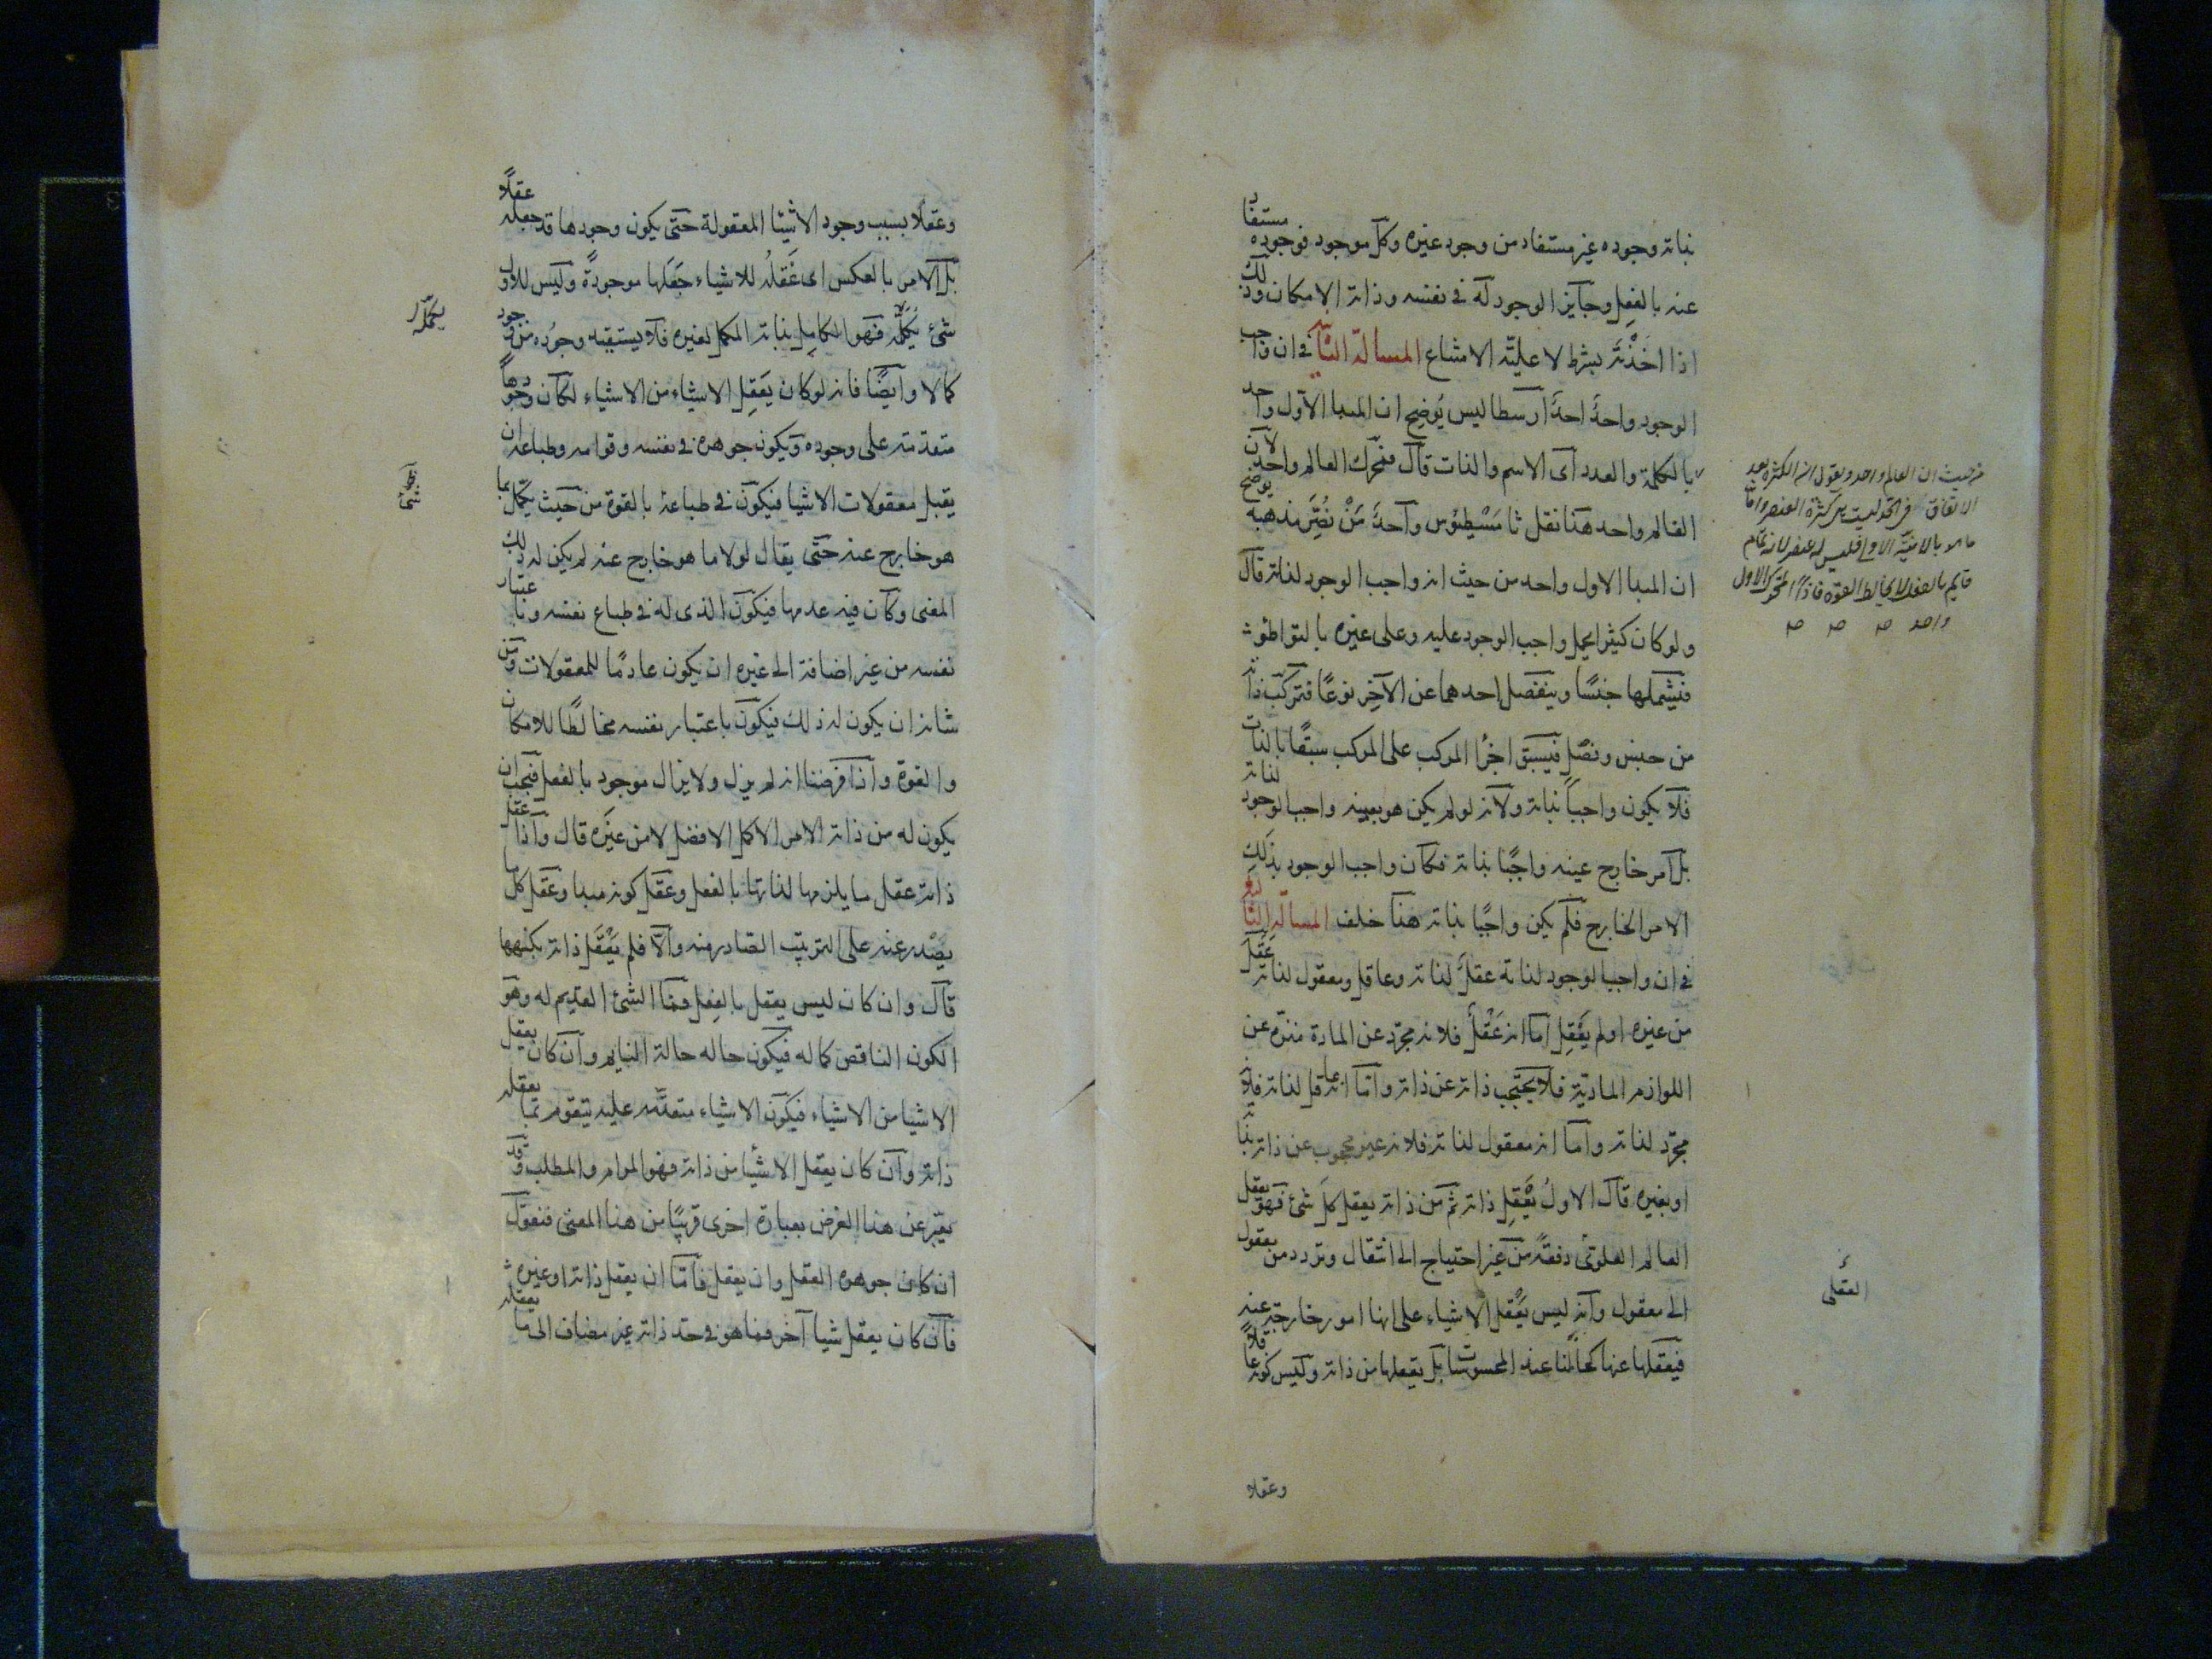 بذاته وجوده غير مستفاد من وجود غيره وكل موجود فوجوده مستفاد
عنه بالفعل وجايز الوجود له في نفسه وذاته الامكان وذلك
اذا اخذته بشرط لا علية الامتناع المسالة الثانية في ان واجب
الوجود واحد احد ارسطاليس يوضح ان المبدا الاول واحد
بالكلمة والعدد اى الاسم والذات قال فمحرك العالم واحد لان
العالم واحد هذا نقل ثامسطيوس واحد من نصر مذهبه يوضح
ان المبدا الاول واحد من حيث انه واجب الوجود لذاته قال
ولو كان كثيرا لحمل واجب الوجود عليه وعلى غيره بالتواطؤ
فيشملها جنسا وينفصل احدهما عن الآخر نوعا فتركب ذاته
من جنس وفصل فيسبق اجزا المركب على المركب سبقا بالذات
فلا يكون واجبا بذاته ولانه لو لم يكن هو بعينه واجب الوجود لذاته
بل امر خارج عينه واجبا بذاته فكان واجب الوجود بذلك
الامر الخارج فلم يكن واجبا بذاته هذا خلف المسالة الثالثة
في ان واجب الوجود لذاته عقل لذاته وعاقل ومعقول لذاته عقل
من غيره او لم يعقل اما انه عقل فلانه مجرد عن المادة منزه عن
اللوازم المادية فلا يحتجب ذاته عن ذاته واما انه عاقل لذاته فلانه
مجرد لذاته واما انه معقول لذاته فلانه غير محجوب عن ذاته بذاته
او بغيره قال الاول يعقل ذاته ثم من ذاته يعقل كل شئ فهو يعقل
العالم العلوى دفعة من غير احتياج الى انتقال وتردد من معقول
الى معقول وانه ليس يعقل الاشياء على انها امور خارجة عنه
فيعقلها عنها كحالنا عند المحسوسات بل يعقلها من ذاته وليس كونه عاقلا
وعقلا
من حيث ان العالم واحد ويقول ان الكثرة بعد
الاتفاق في الحد ليست هى كثرة العنصر واما
ما هو بالانية الاولى فليس له عنصر لانه تمام
قايم بالفعل لا يخالط القوة فاذا المحرك الاول
واحد صح صح صح
العقلى
وعقلا بسبب وجود الاشيا المعقولة حتى يكون وجودها قد جعله عقلا
بل الامر بالعكس اى عقله للاشياء جعلها موجودة وليس للاول
شئ يكمله فهو الكامل بذاته المكمل لغيره فلا يستفيد وجوده من وجود
كمالا وايضا فانه لو كان يعقل الاشياء من الاشياء لكان وجودها
متقدمة على وجوده ويكون جوهره في نفسه وقوامه وطباعه ان
يقبل معقولات الاشيا فيكون في طباعه بالقوة من حيث يكمل بما
هو خارج عنه حتى يقال لولا ما هو خارج عنه لم يكن له ذلك
المعنى وكان فيه عدمها فيكون الذى له في طباع نفسه وباعتبار
نفسه من غير اضافة الى غيره ان يكون عادما للمعقولات ومن
شانه ان يكون له ذلك فيكون باعتبار نفسه مخالطا للامكان
والقوة واذا فرضنا انه لم يزل ولا يزال موجود بالفعل فيجب ان
يكون له من ذاته الامر الاكمل الافضل لا من غيره قال واذا عقل
ذاته عقل ما يلزمها لذاتها بالفعل وعقل كونه مبدا وعقل كل ما
يصدر عنه على الترتيب الصادر منه والا فلم يعقل ذاته بكنهها
قال وان كان ليس يعقل بالفعل فما الشئ العديم له وهو
الكون الناقص كماله فيكون حاله حالة النايم وان كان يعقل
الاشيا من الاشياء فيكون الاشياء متقدمة عليه يتقوم بما يعقله
ذاته وان كان يعقل الاشيا من ذاته فهو المرام والمطلب وقد
يعبر عن هذا الغرض بعبارة اخرى قريبا من هذا المعنى فنقول
ان كان جوهره العقل وان يعقل فاما ان يعقل ذاته او غيره
فان كان يعقل شيا آخر فما هو في حد ذاته غير مضاف الى ما يعقله
يكمله